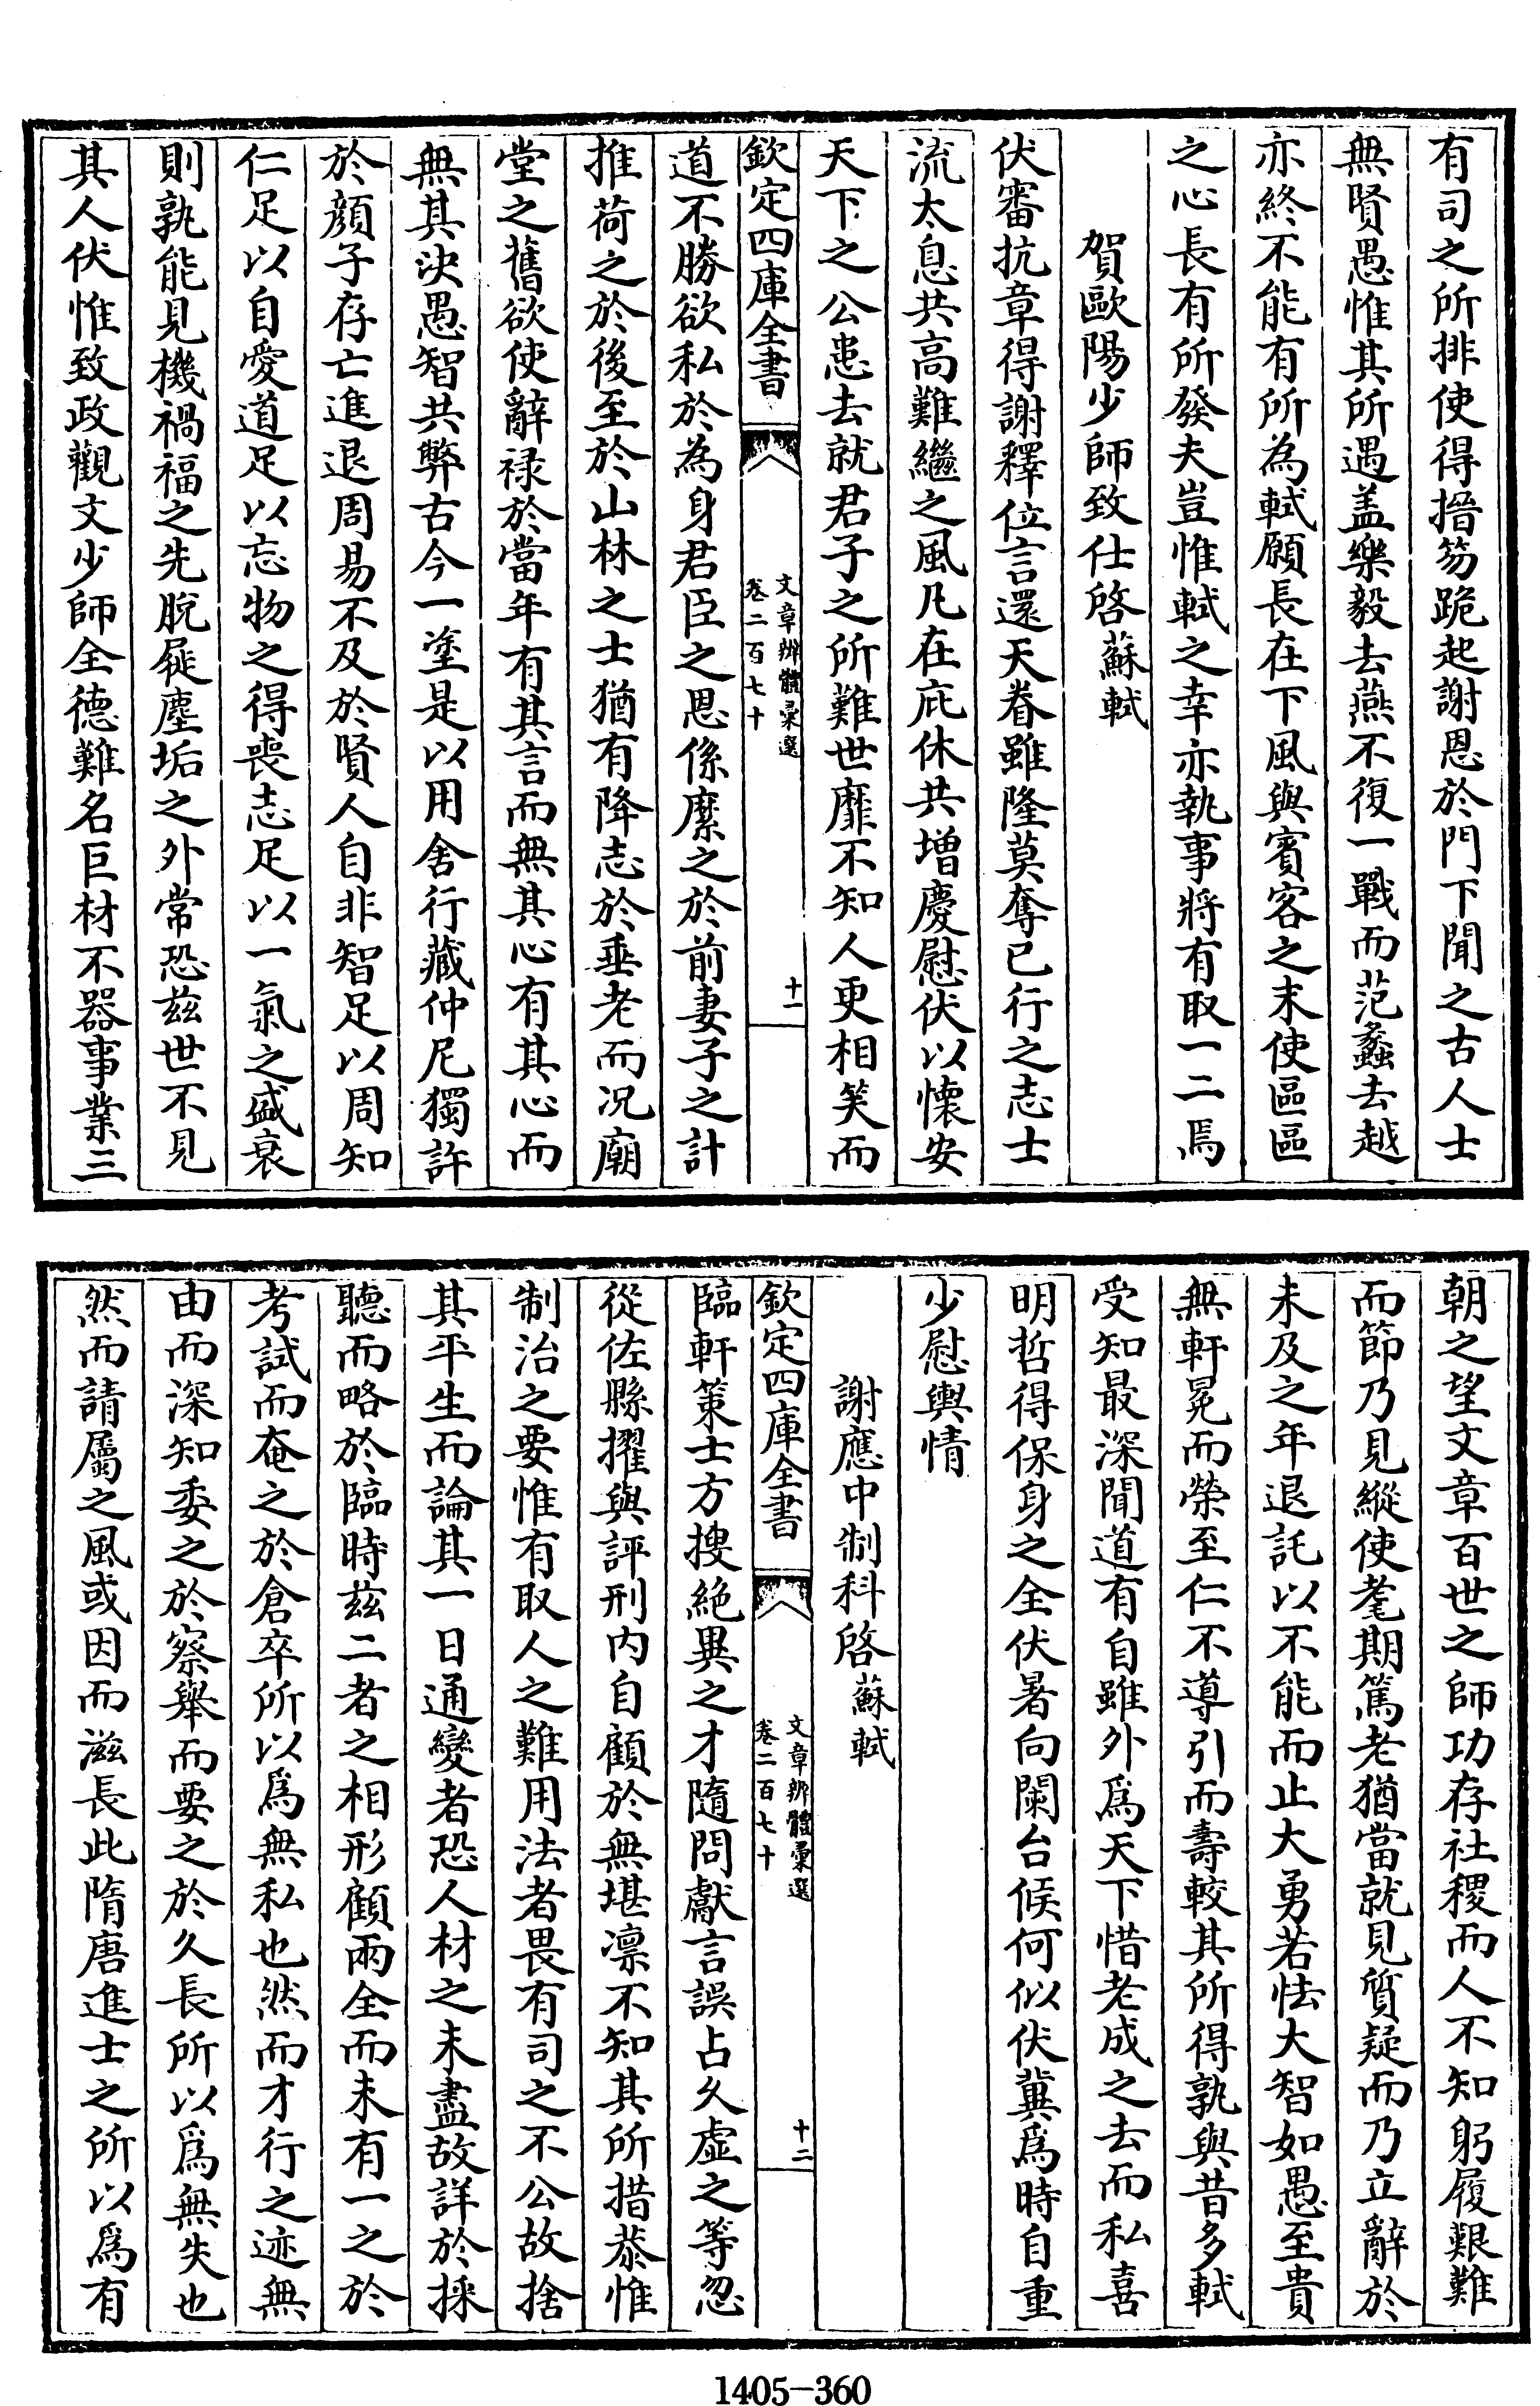 有司之所排使得搢笏跪起謝恩於門下聞之古人士
無賢愚惟其所遇盖樂毅去燕不復一戰而范蠡去越
亦終不能有所為軾願長在下風與賓客之末使區區
之心長有所發夫豈惟軾之幸亦執事將有取一二焉
賀歐陽少師致仕啓蘇軾
伏審抗章得謝釋位言還天眷雖隆莫奪已行之志士
流太息共高難繼之風凡在庇休共增慶慰伏以懷安
天下之公患去就君子之所難世靡不知人更相笑而
欽定四庫全書
文章辨體彙選
卷二百七十
十一
道不勝欲私於為身君臣之恩係縻之於前妻子之計
推荷之於後至於山林之士猶有降志於垂老而況廟
堂之舊欲使辭禄於當年有其言而無其心有其心而
無其決愚智共弊古今一塗是以用舍行藏仲尼獨許
於顔子存亡進退周易不及於賢人自非智足以周知
仁足以自愛道足以忘物之得喪志足以一氣之盛衰
則孰能見機禍福之先脫屣塵垢之外常恐茲世不見
其人伏惟致政觀文少師全德難名巨材不器事業三
朝之望文章百世之師功存社稷而人不知躬履艱難
而節乃見縱使耄期篤老猶當就見質疑而乃立辭於
未及之年退託以不能而止大勇若怯大智如愚至貴
無軒冕而榮至仁不導引而壽較其所得孰與昔多軾
受知最深聞道有自雖外爲天下惜老成之去而私喜
明哲得保身之全伏暑向闌台候何似伏冀爲時自重
少慰輿情
謝應中制科啓蘇軾
欽定四庫全書
文章辨體彙選
卷二百七十
十二
臨軒策士方搜絶異之才隨問獻言誤占久虛之等忽
從佐縣擢與評刑内自顧於無堪凛不知其所措恭惟
制治之要惟有取人之難用法者畏有司之不公故捨
其平生而論其一日通變者恐人材之未盡故詳於採
聽而略於臨時茲二者之相形顧兩全而未有一之於
考試而奄之於倉卒所以爲無私也然而才行之迹無
由而深知委之於察舉而要之於久長所以爲無失也
然而請屬之風或因而滋長此隋唐進士之所以爲有
1405-360